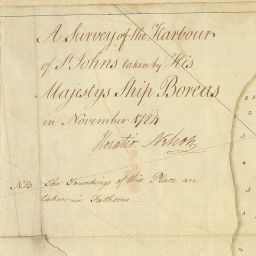 A Survey of the Harbour
of St. Johns taken by His
Majestys Ship Boreas
in November 1784
Horatio Nelson
NB The Soundings of this Place are
taken in Fathoms